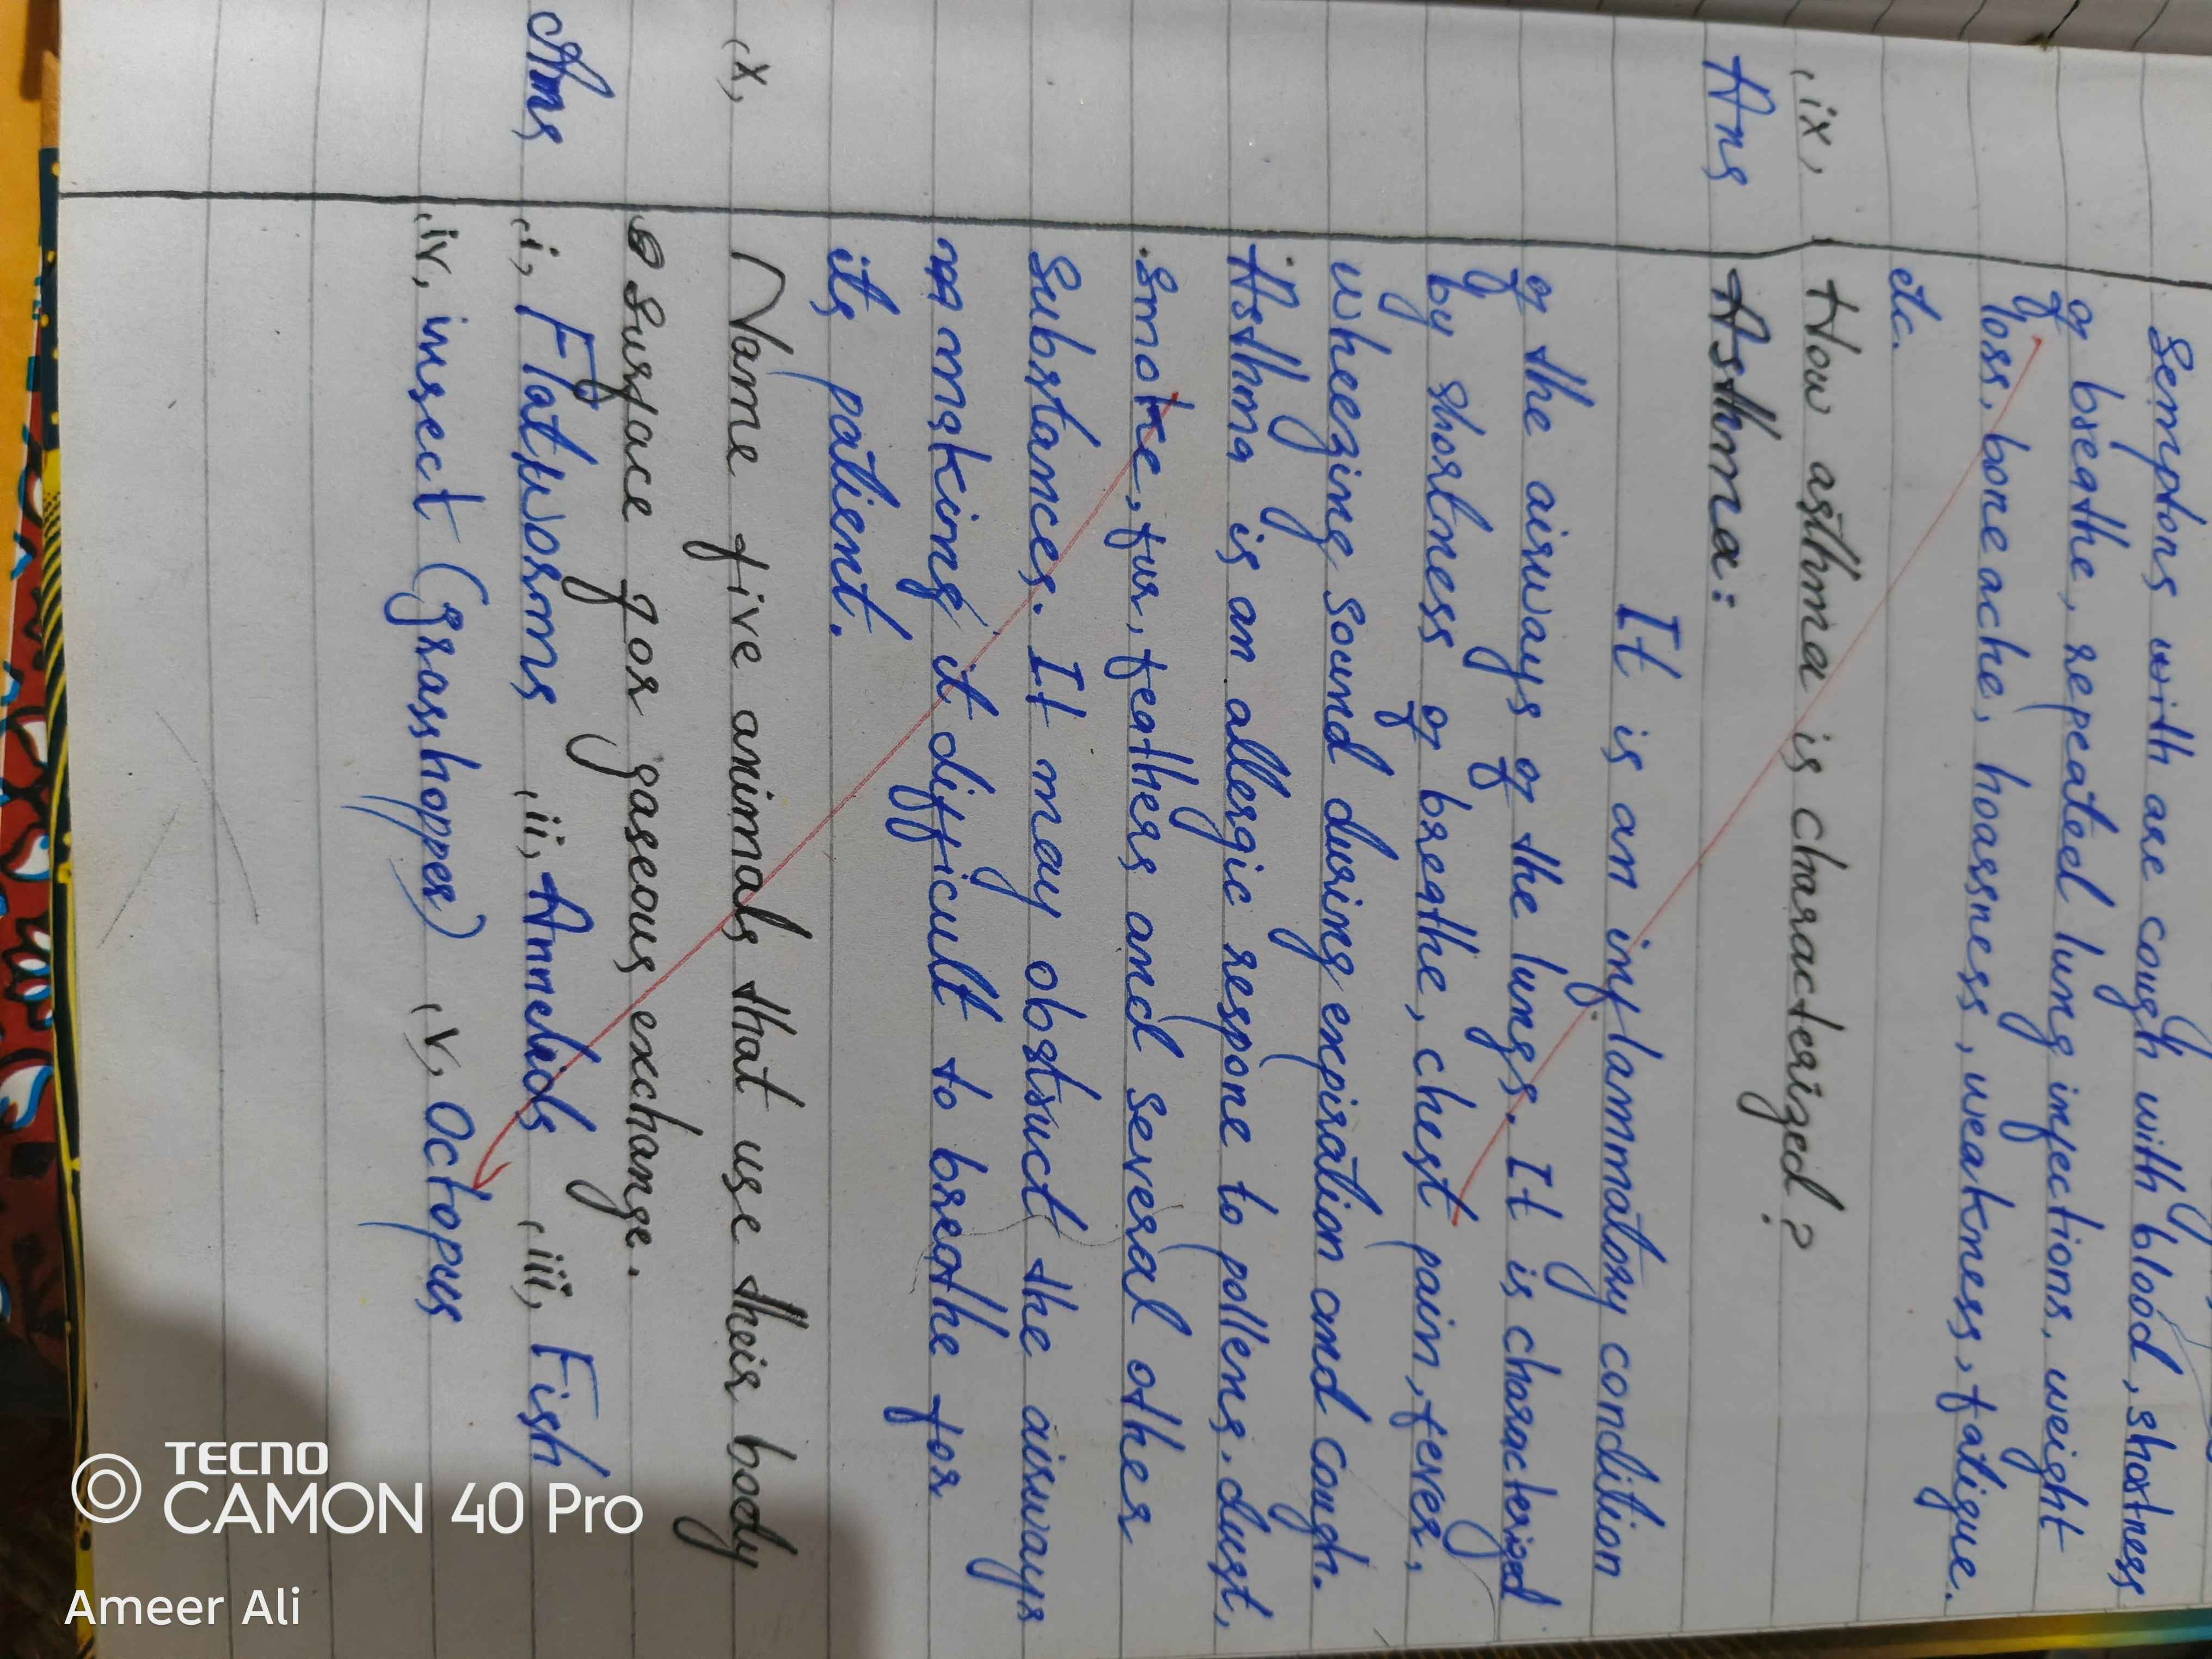 Semptons with are cough with blood, shortness
of breathe, repeated lung infections, weight
loss, bone ache, hoarsness, weakness, fatigue.
etc.
(ix) How asthma is characterized?
Ans Asthma:
It is an inflammatory condition
of the airways of the lungs. It is characterized
by shortness of breathe, chest pain, fever,
wheezing sound during expiration and cough.
Asthma is an allergic respone to pollens, dust,
smoke, fur, feathers and several other
substances. It may obstruct the airways
making it difficult to breathe for
its patient.
(x) Name five animals that use their body
surface for gaseous exchange.
Ans (i) Flatworms (ii) Annelids (iii) Fish
(iv) insect (grasshopper) (v) Octopus
TECNO
CAMON 40 Pro
Ameer Ali